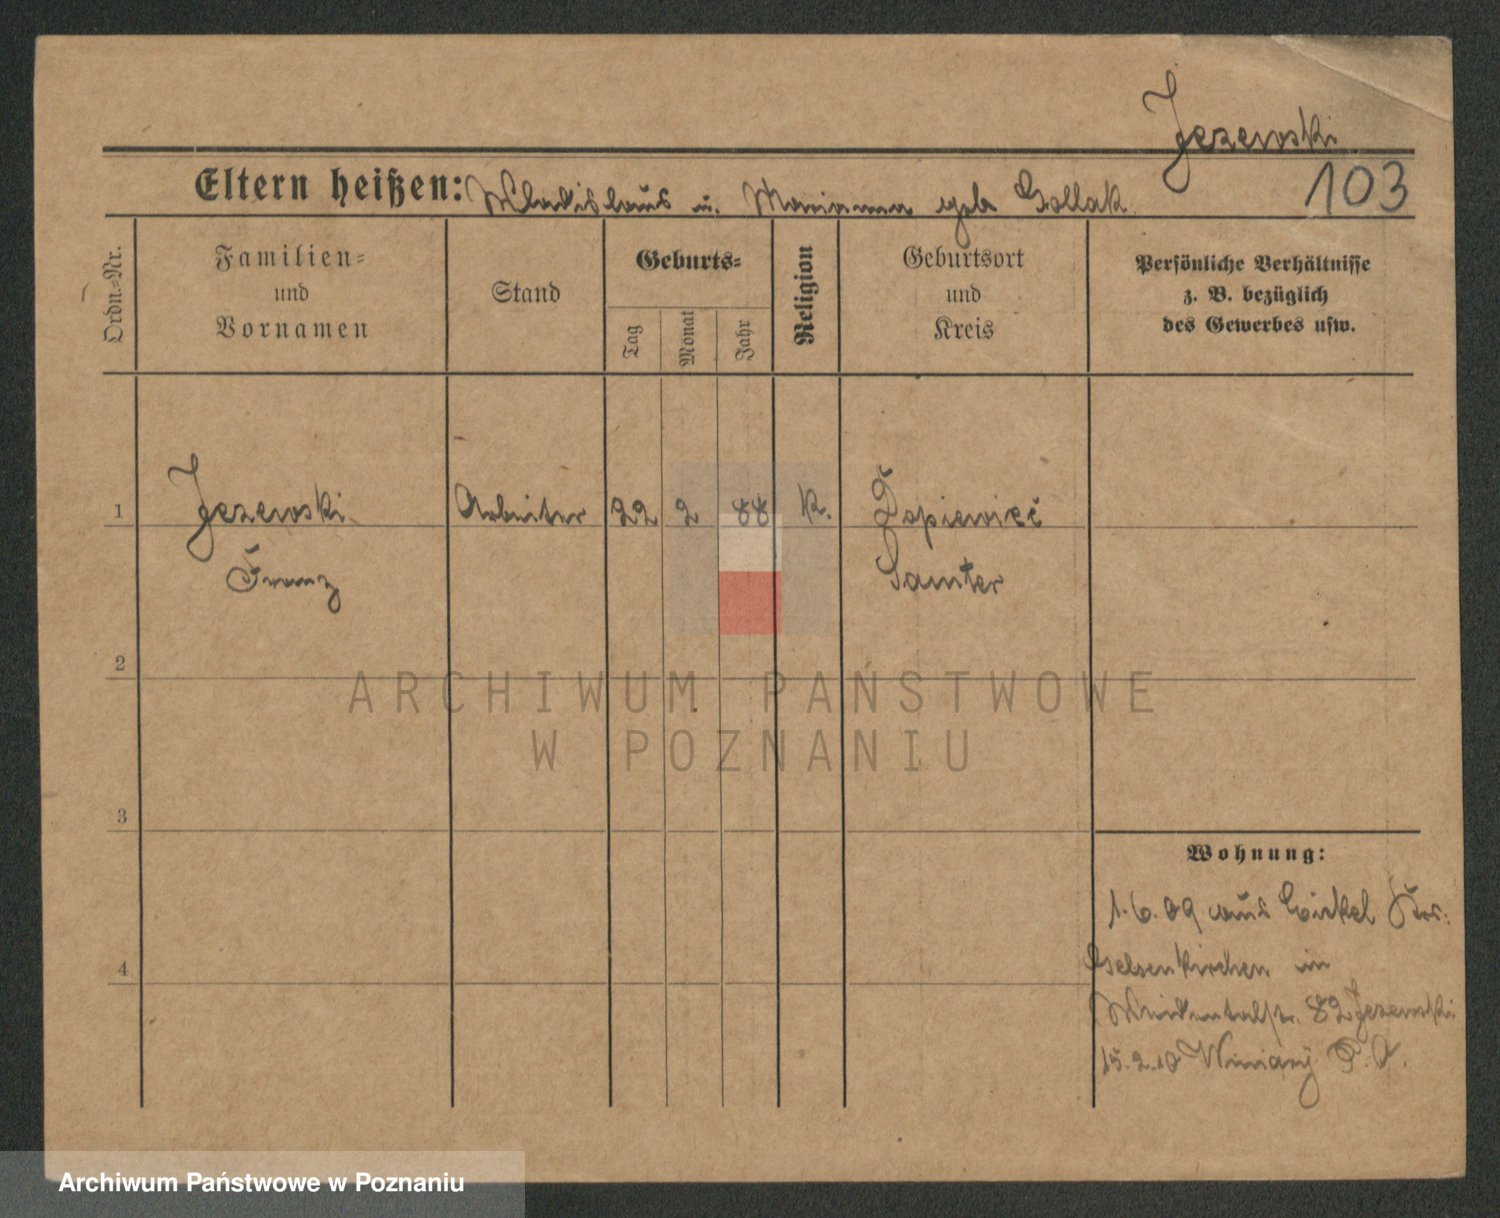 Jezewski
103
Eltern heißen: Wladislaus u. Marianna geb Gollak
Ordn.-Nr.
Familien-
und
Vornamen
Stand
Geburts-
Tag
Monat
Jahr
Religion
Geburtsort
und
Kreis
Persönliche Verhältnisse
z. B. bezüglich
des Gewerbes usw.
1 Jezewski Arbeiter 22 2 88 K.
Franz Samter
2
ARCHIWUM PAŃSTWOWE
W POZNANIU
3
Wohnung:
1.6.09 aus Eickel Krs.
Gelsenkirchen in
4
82 Jezewski
15.2.10 Winiary P. O.
Archiwum Państwowe w Poznaniu